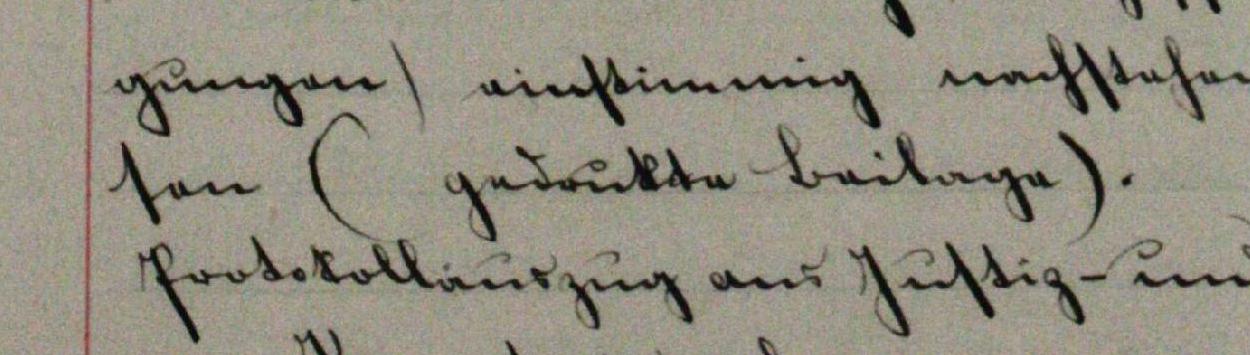 gungen) einstimmig nachstehen
sen ( gedrukte Beilage).
Protokollauszug ans Justiz- und